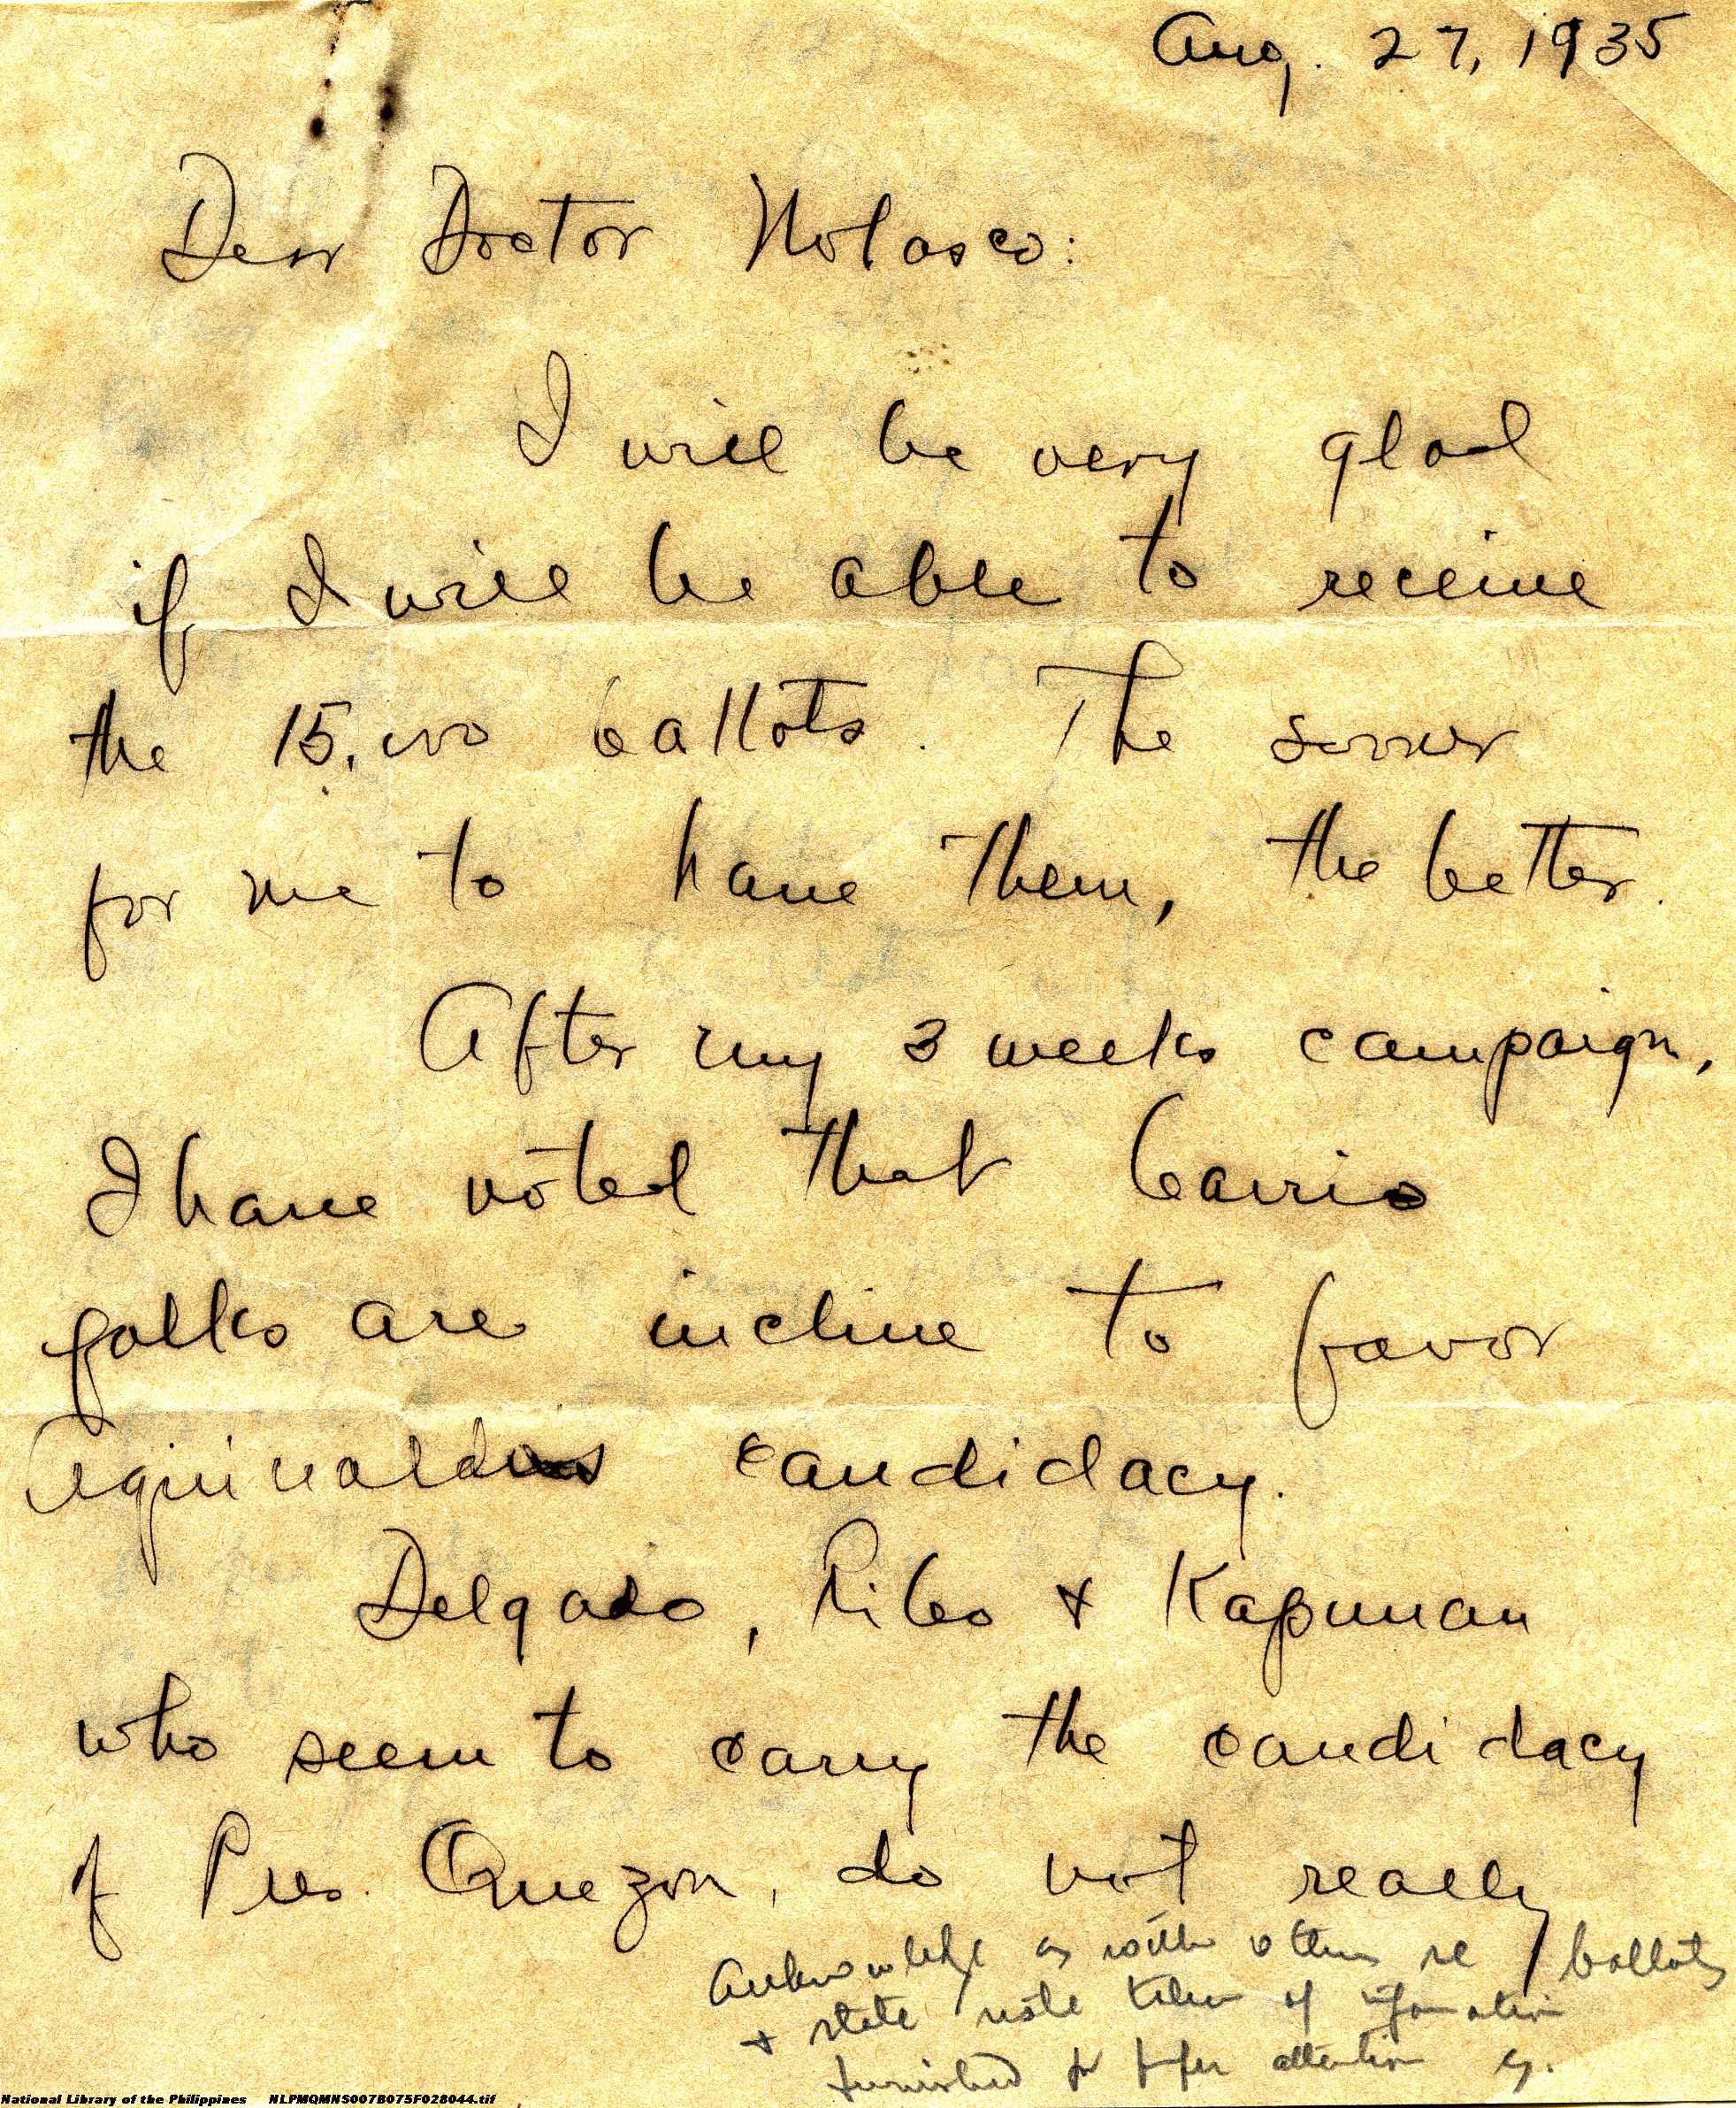 Aug. 27, 1935
Dear Doctor Nolasco:
I will be very glad
if I will be able to receive
the 15,000 ballots. The sooner
for me to have them, the better.
After my 3 weeks campaign,
I have noted that barrio
folks are incline to favor
Aguinaldo's candidacy.
Delgado, Ribo & Kapunan
who seem to carry the candidacy
of Pres. Quezon, do not really
Acknowledge as with others re ballots
& state note taken of information
furnished for proper attention
National Library of the Philippines NLPMQMNS007B075F028044.tif